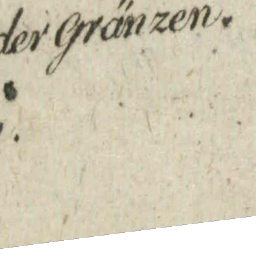 der Gränzen.